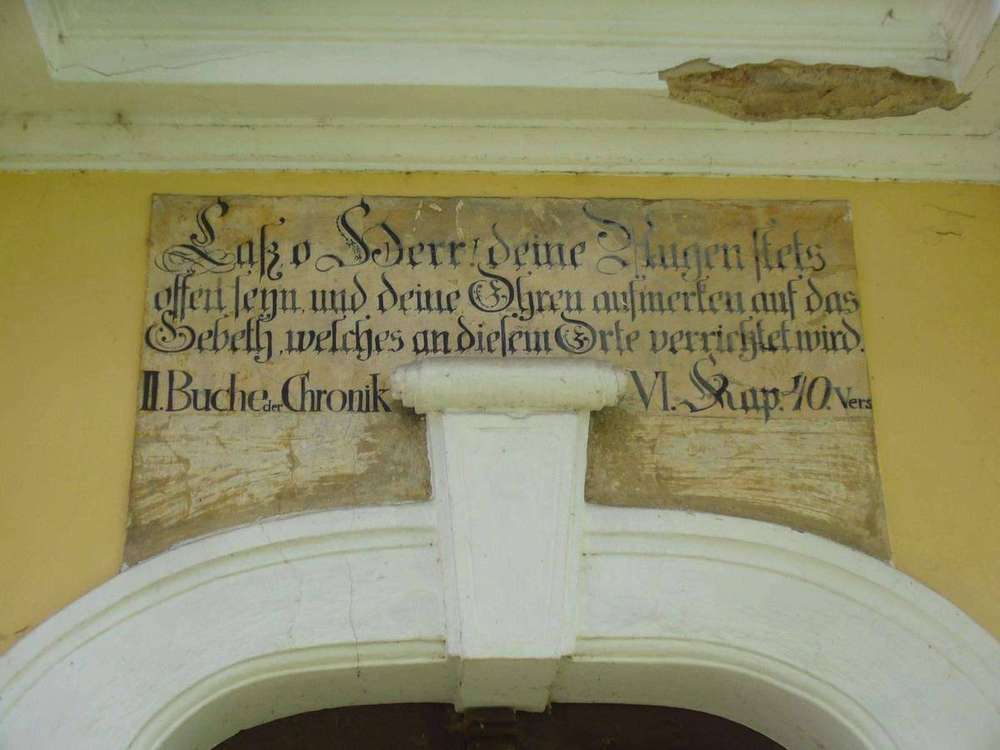 Laß o Herr! deine Augen stets
offen seyn, und deine Ohren aufmerken auf das
Gebeth, welches an diesem Orte verrichtet wird.
II. Buche der Chronik VI. Kap. 40. Vers